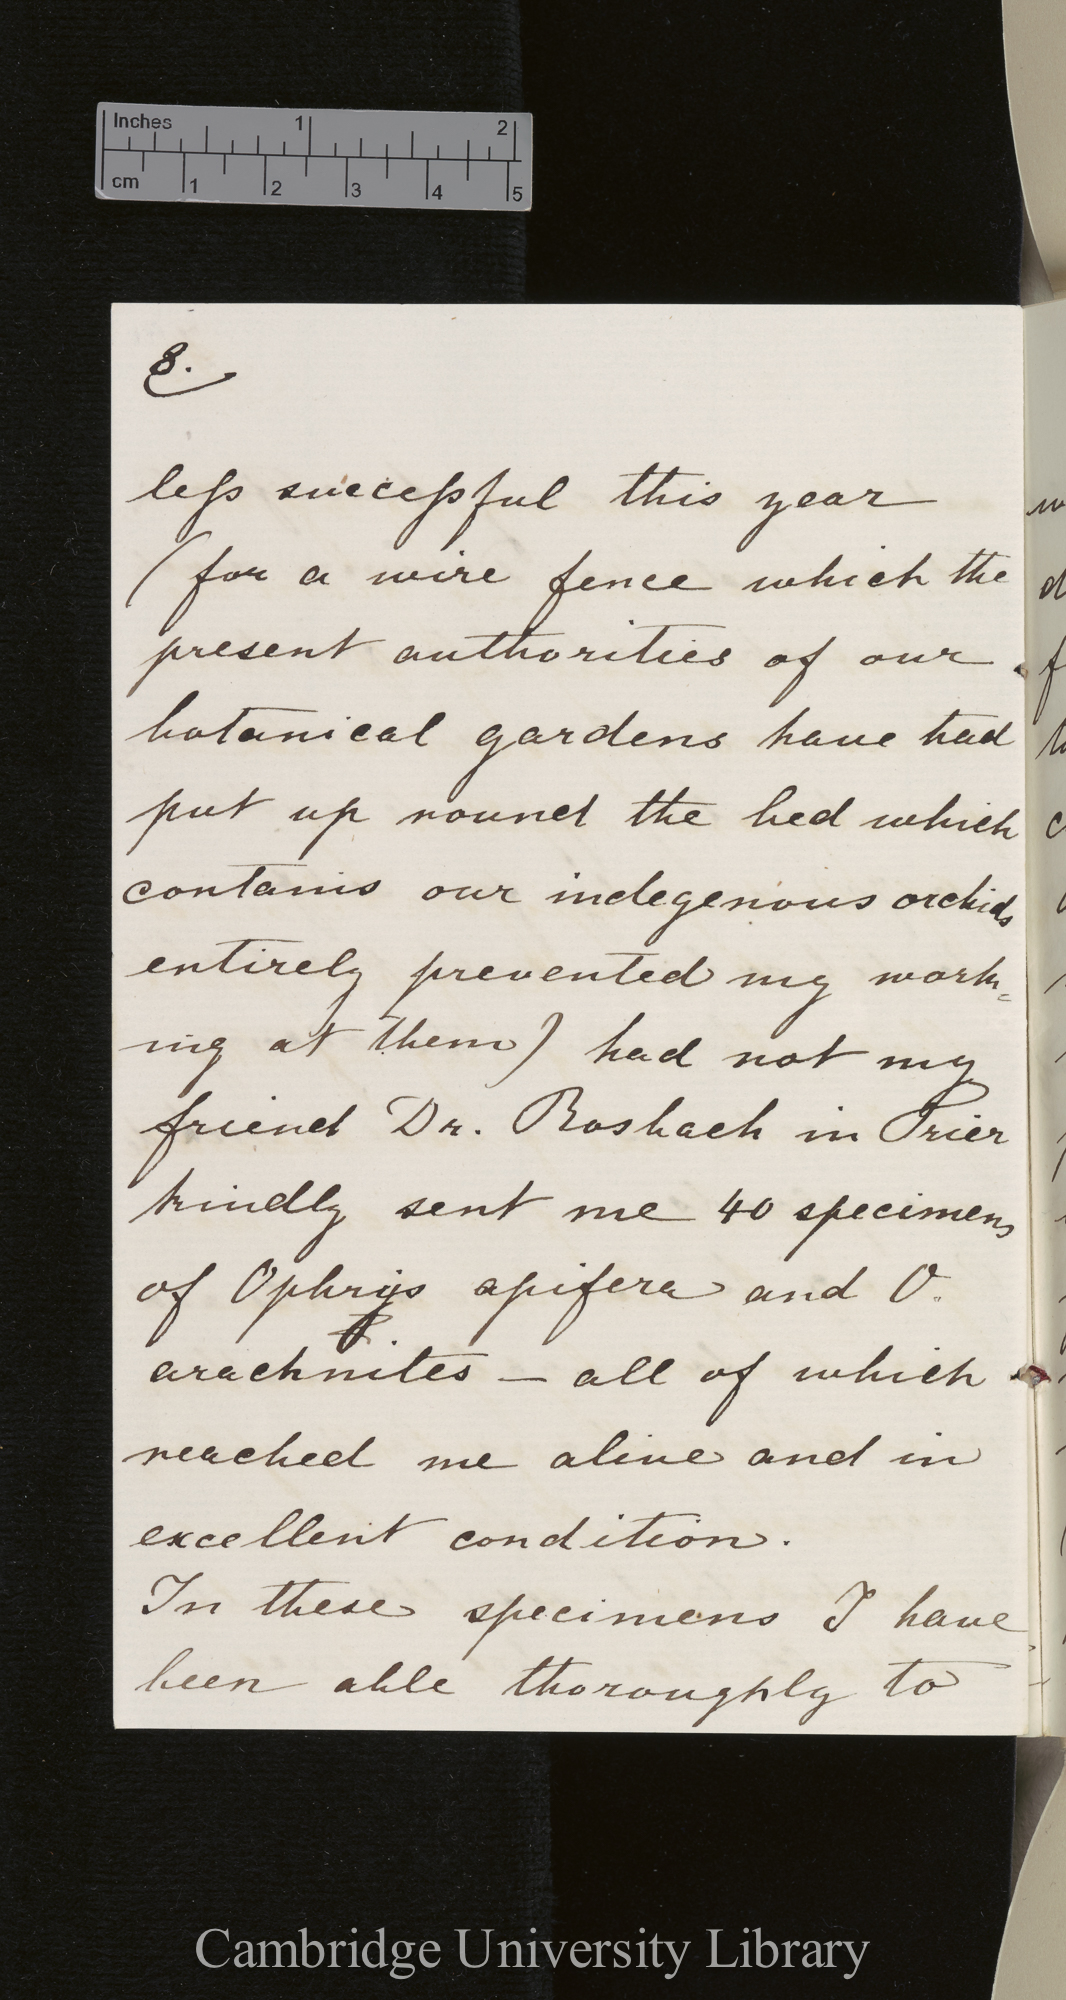 Inches 1 2
cm 1 2 3 4 5
8.
less successful this year
(for a wire fence which the
present authorities of our
botanical gardens have had
put up round the bed which
contains our indegenous orchids
entirely prevented my work=
ing at them) had not my
friend Dr. Rosbach in Trier
kindly sent me 40 specimens
of Ophrys apifera and O.
arachnites — all of which
reached me alive and in
excellent condition.
In these specimens I have
been able thoroughly to
Cambridge University Library